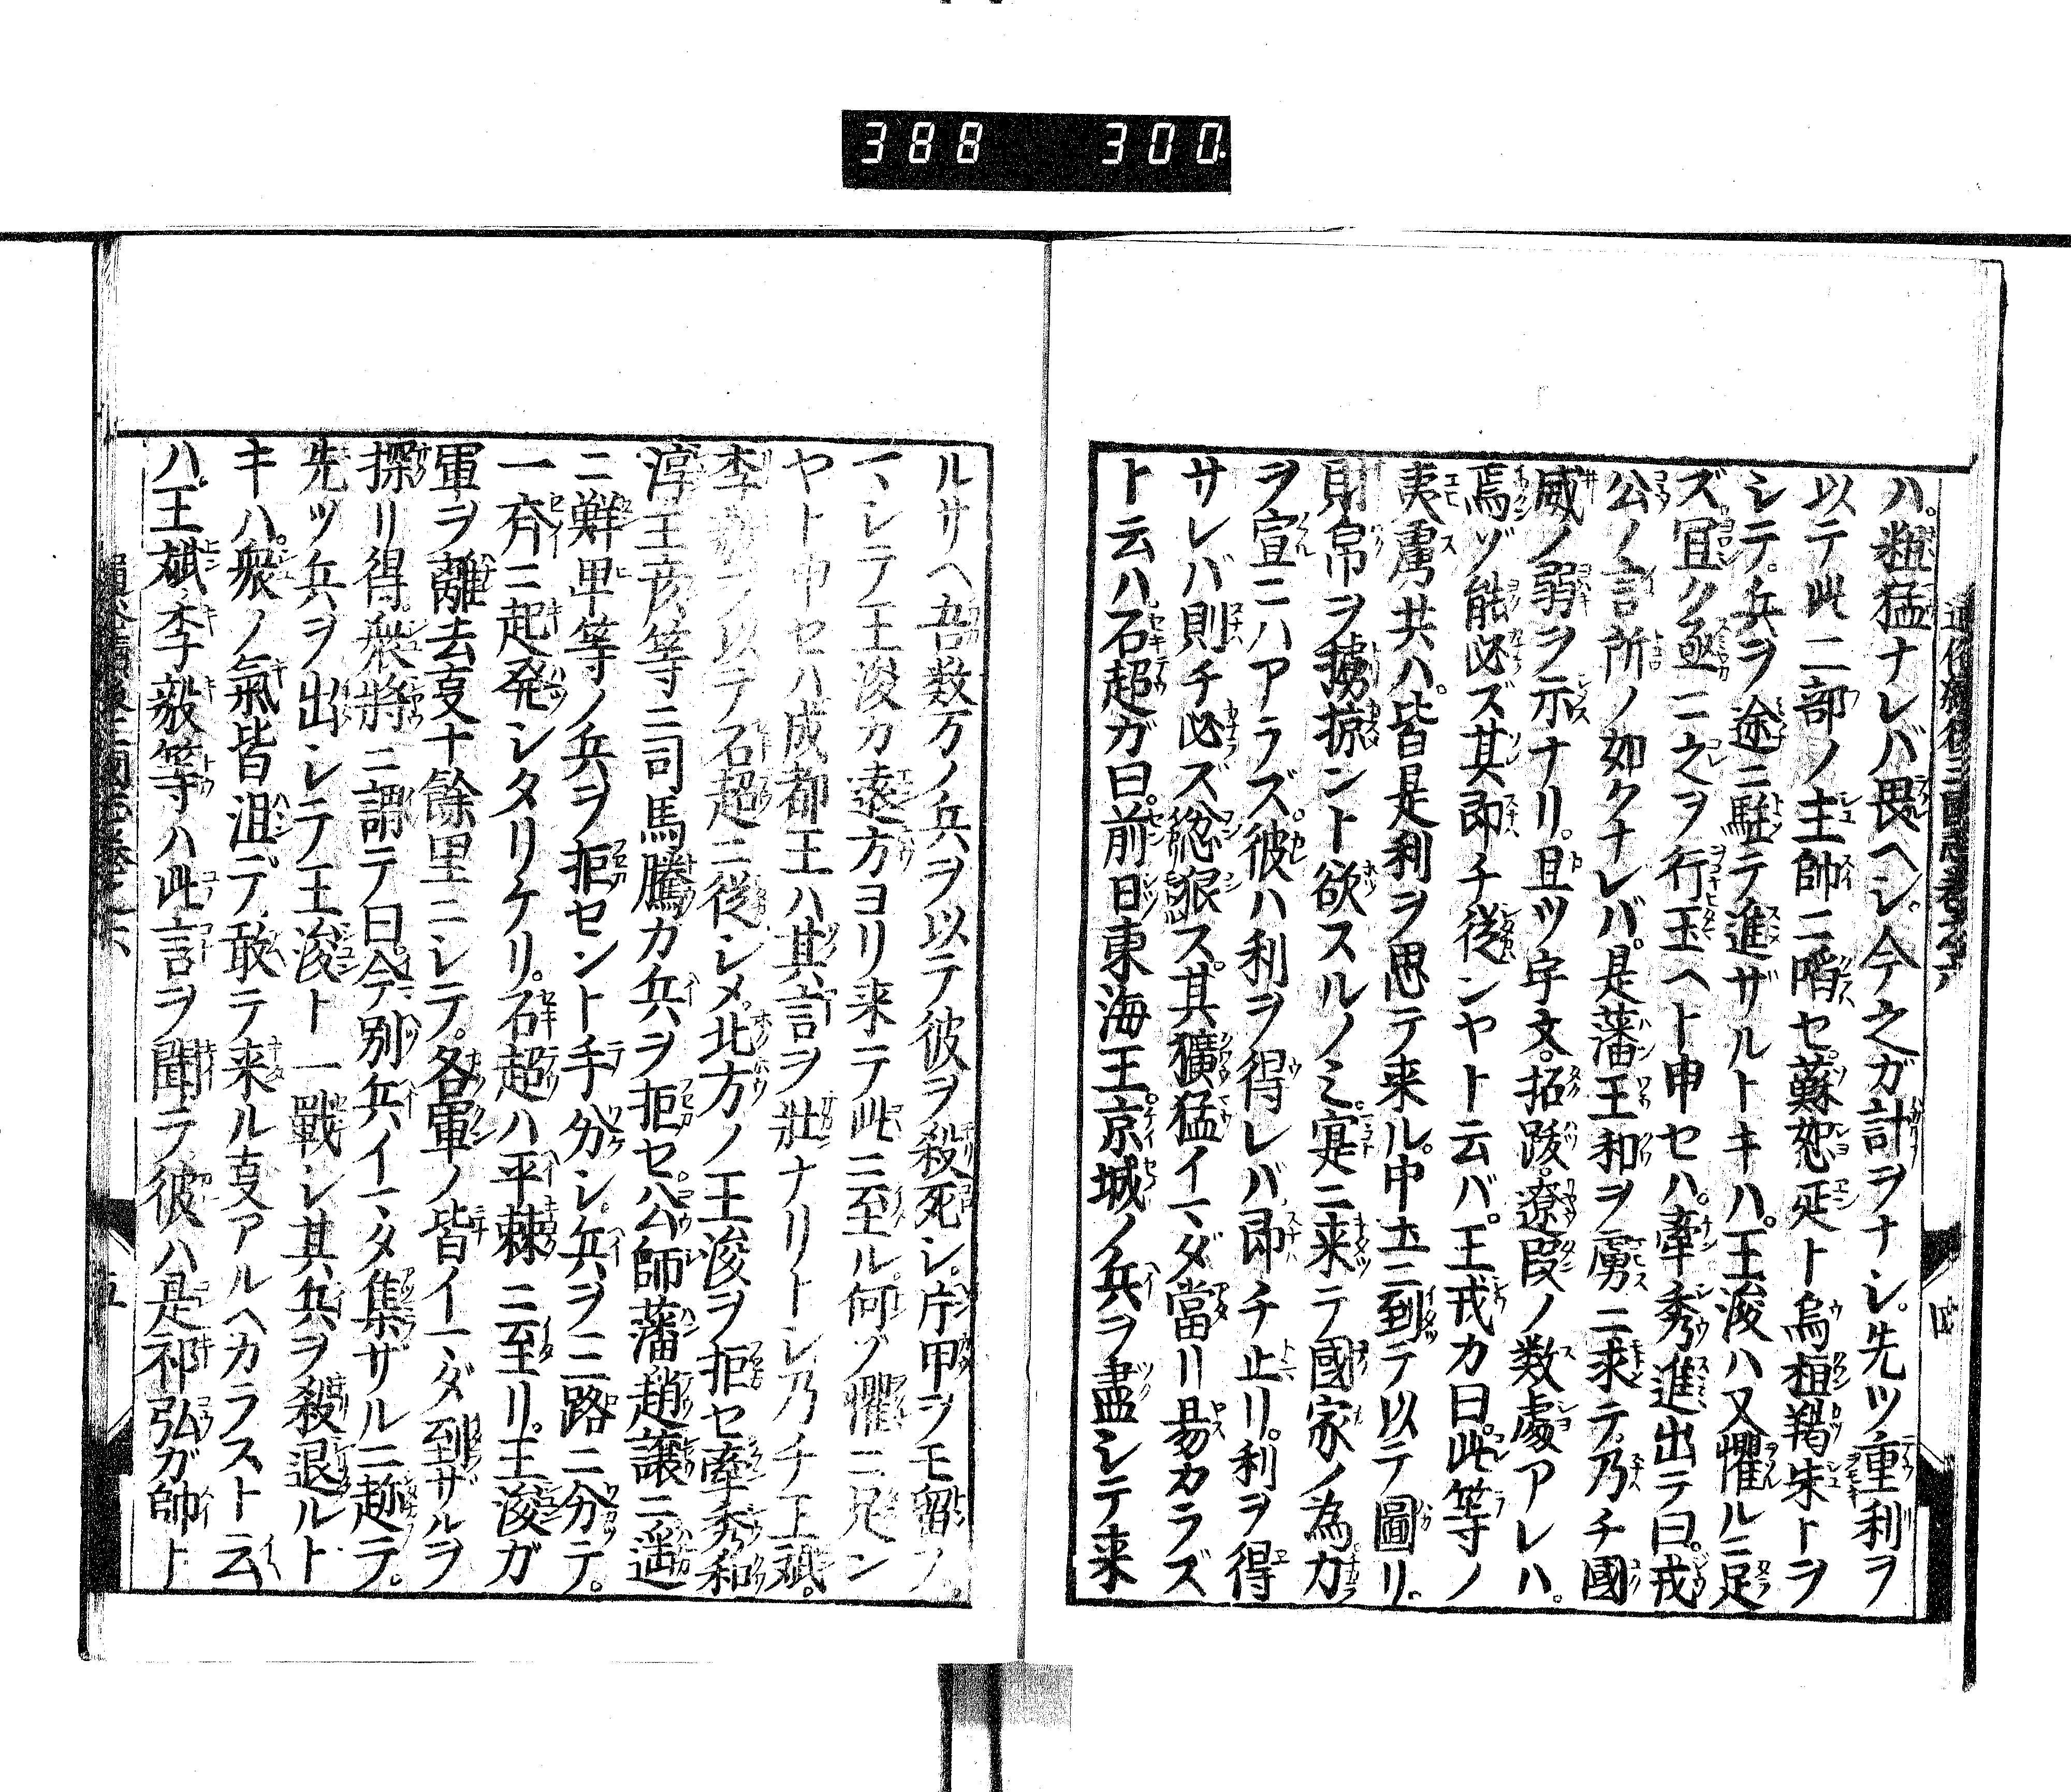 388 300
ハ。粗猛ナレバ畏ヘシ。今之ガ計ヲナシ。先ツ重利ヲ
以テ此二部ノ主帥ニ啗セ。蘇恕延ト烏桓羯朱トヲ
シテ。兵ヲ途ニ駐テ進ザルトキハ。王浚ハ又懼ルニ足
ズ。冝ク亟ニ之ヲ行玉ヘト申セハ。牽秀進出テ曰。戎
公ノ言所ノ如クナレバ。是藩王和ヲ虜ニ求テ。乃チ國
威ノ弱ヲ示ナリ。且ツ宇文。拓跋。遼段ノ数處アレハ。
焉ゾ能必ズ其即チ從ンヤト云バ。王戎カ曰。此等ノ
夷虜共ハ。皆是利ヲ思テ来ル。中土ニ到テ以テ圖リ。
則帛ヲ擄掠ント欲スルノミ。寔ニ来テ國家ノ為カ
ヲ宣ニハアラズ。彼ハ利ヲ得レバ即チ止リ。利ヲ得
サレバ則チ必ズ怨狠ス。其獷猛イマダ當リ易カラズ
ト云ハ。石超ガ曰。前日東海王。京城ノ兵ヲ盡シテ来
ルサヘ吾数万ノ兵ヲ以テ彼ヲ殺死シ。片甲ヲモ留ノ
マシテ王浚カ遠方ヨリ来テ此ニ至ル。何ゾ懼ニ足ン
ヤト申セハ成都王ハ其言ヲ壯ナリトシ乃チ王斌。
李毅ヲ以テ石超ニ從シメ。北方ノ王浚ヲ拒セ牽秀和
淳王彦等ニ司馬騰カ兵ヲ拒セ。公師藩趙讓ニ遥
ニ鮮卑等ノ兵ヲ拒セント手分シ。兵ヲ三路ニ分テ。
一齊ニ起発シタリケリ。石超ハ平棘ニ至リ。王浚ガ
軍ヲ離去亊十餘里ニシテ。各軍ノ皆イマダ到ザルヲ
探リ得衆將ニ謂テ曰。今別兵イマタ集ザルニ趂テ。
先ツ兵ヲ出シテ王浚ト一戰シ其兵ヲ殺退ルト
キハ。衆ノ氣皆沮デ。敢テ来ル亊アルヘカラスト云
ハ。王斌。李毅等ハ此言ヲ聞テ彼ハ是祁弘ガ帥ト